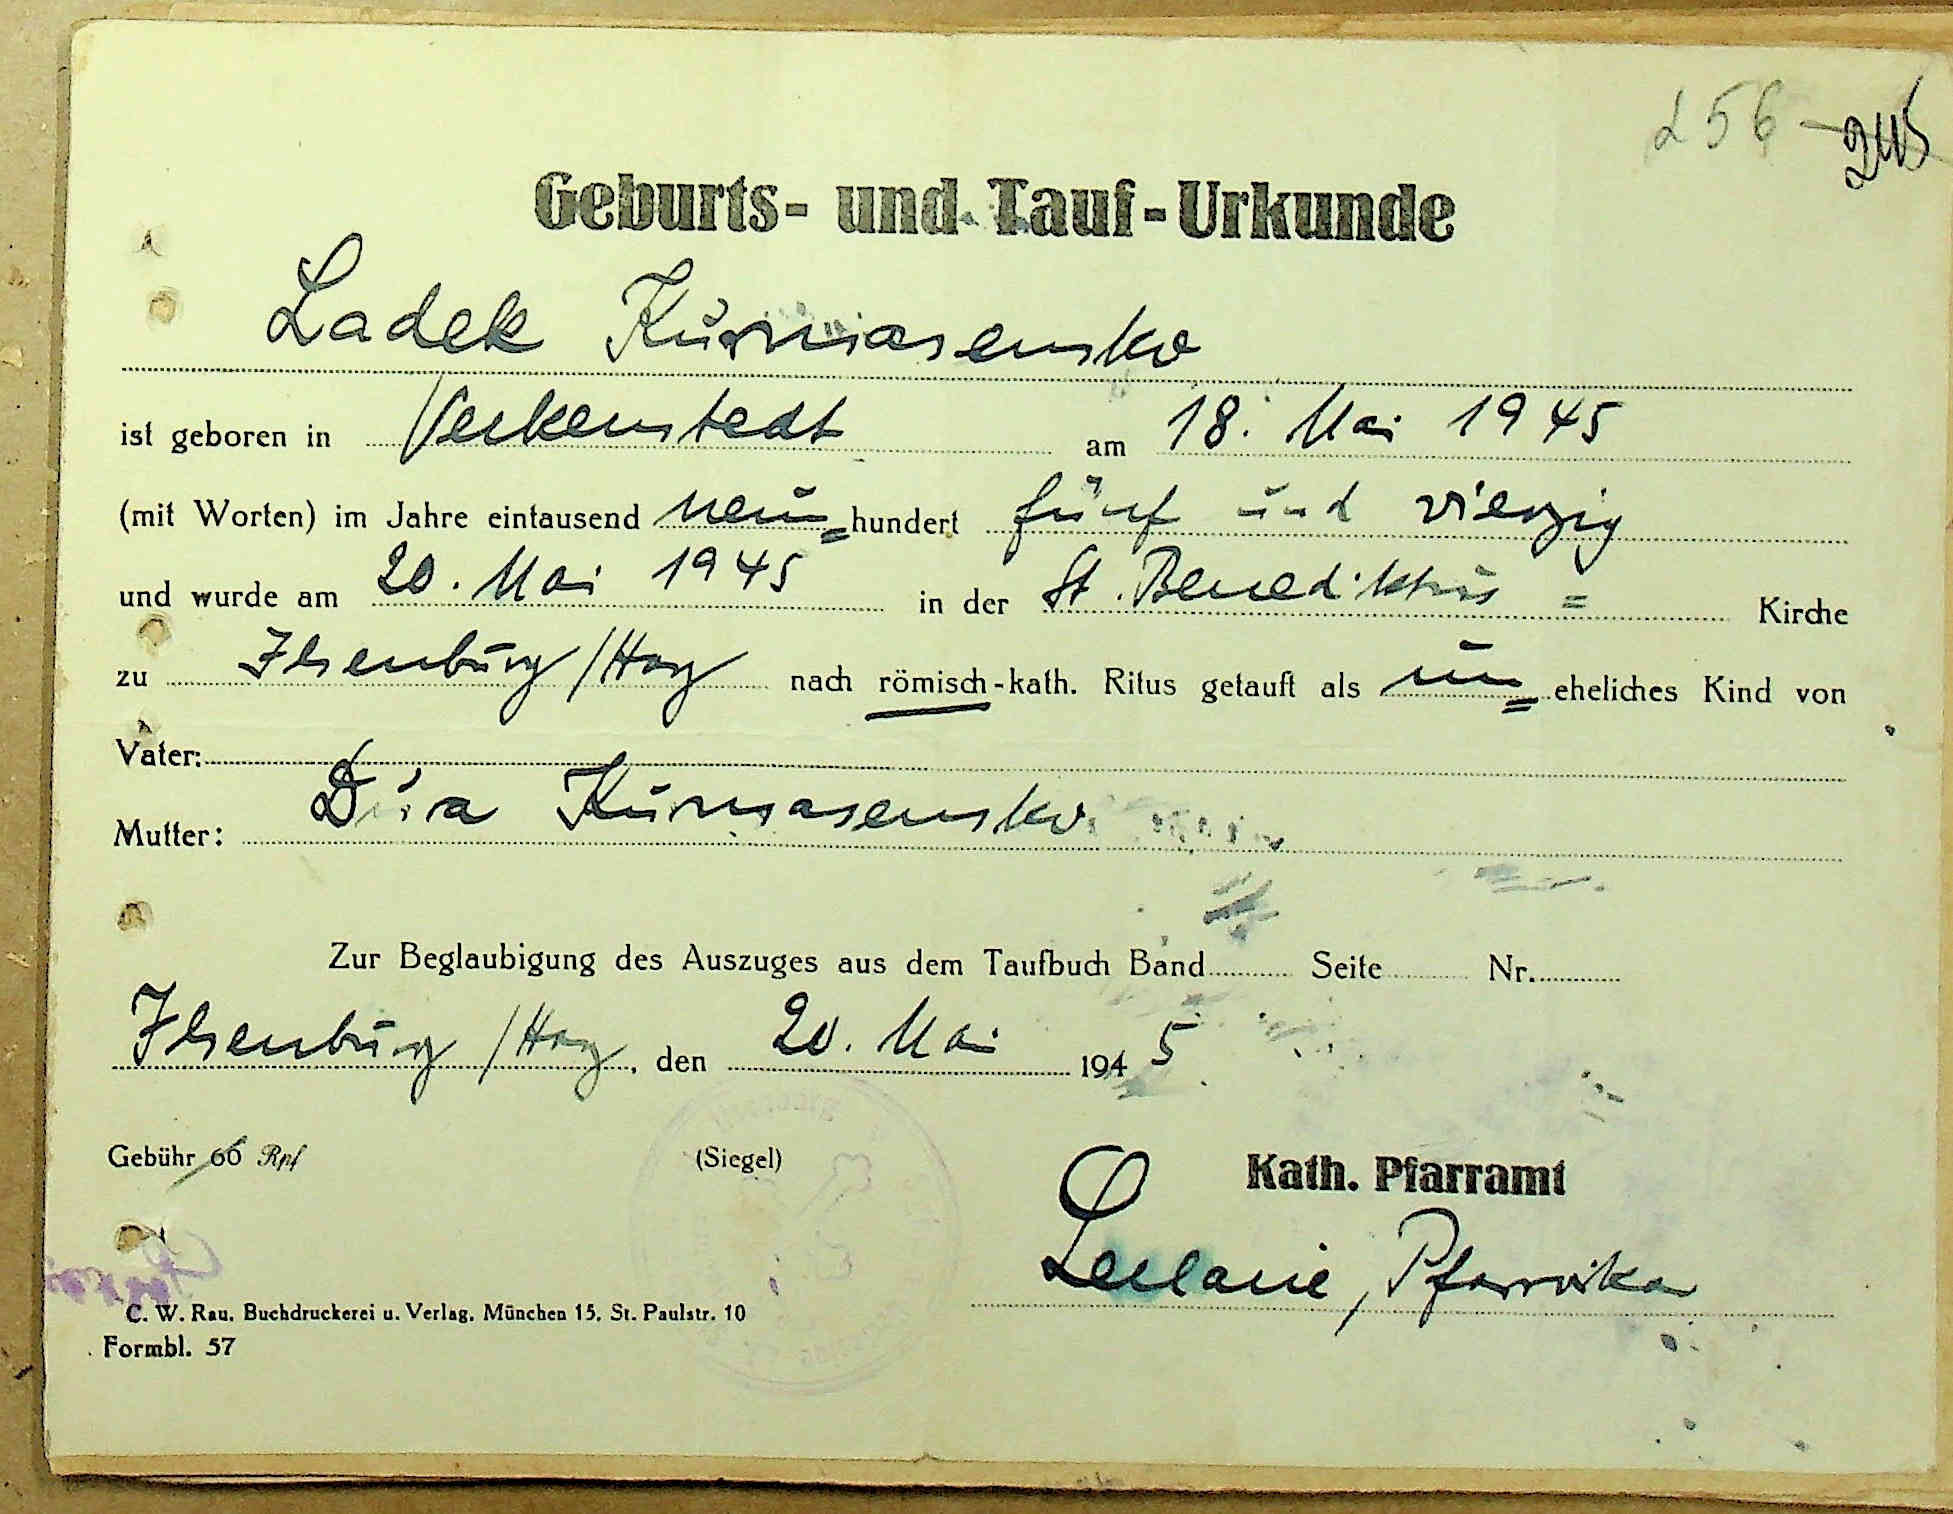 256 245
Geburts- und Tauf-Urkunde
Ladek Kurmasensko
ist geboren in Veckenstedt am 18. Mai 1945
(mit Worten) im Jahre eintausend neun=hundert fünf und vierzig
und wurde am 20. Mai 1945 in der St. Benediktus = Kirche
zu Ilsenburg/Harz nach römisch-kath. Ritus getauft als un=eheliches Kind von
Vater:
Mutter: Kurmasensko
Zur Beglaubigung des Auszuges aus dem Taufbuch Band Seite Nr.
Ilsenburg/Harz, den 20. Mai 1945
Gebühr 60 Rpf (Siegel) Kath. Pfarramt
Pfarrvikar
C. W. Rau, Buchdruckerei u. Verlag, München 15, St. Paulstr. 10
Formbl. 57